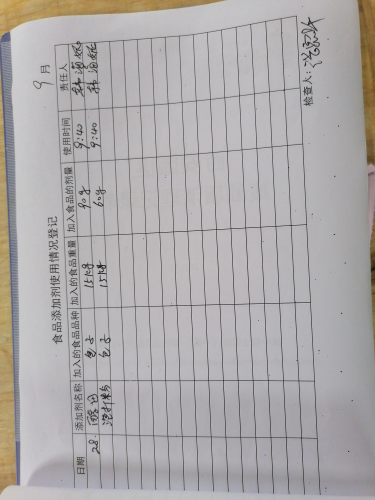 9月
食品添加剂使用情况登记
日期 添加剂名称 加入的食品品种 加入的食品重量 加入食品的剂量 使用时间 责任人
28. 酵母 包子 15kg 90g 9:40
泡打粉 包子 15kg 60g 9:40
检查人: